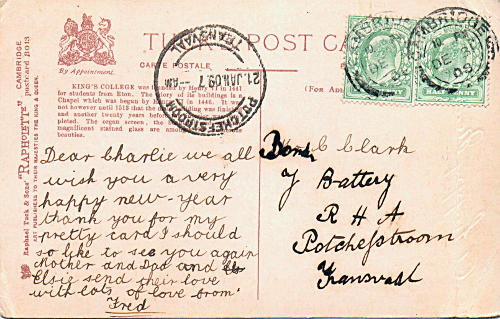 THE POST CARD
CARTE POSTALE
By Appointment.
(For
KING'S COLLEGE was founded by Henry VI in 1441
for students from Eton. The glory of its buildings is its
Chapel which was begun by Henry in 1446. It was
not however until 1515 that the building was finished
and another twenty years before
pleted. The organ screen, the
magnificent stained glass are among
beauties.
Raphael Tuck & Sons' "RAPHOLETTE" CAMBRIDGE
Postcard 8013
ART PUBLISHERS TO THEIR MAJESTIES THE KING & QUEEN.
POTCHEFSTROOM
TRANSVAAL
21. JAN. 09. 7 -AM
CAMBRIDGE
DE 31
08
HALFPENNY
HALFPENNY
Dear Charlie we all
wish you a very
happy new-year
thank you for my
pretty card I should
so like to see you again
Mother and Dad and
Elsie send their love
with lots of love from
Fred
Clark
Y Battery
R H A
Potchefstroom
Transvaal